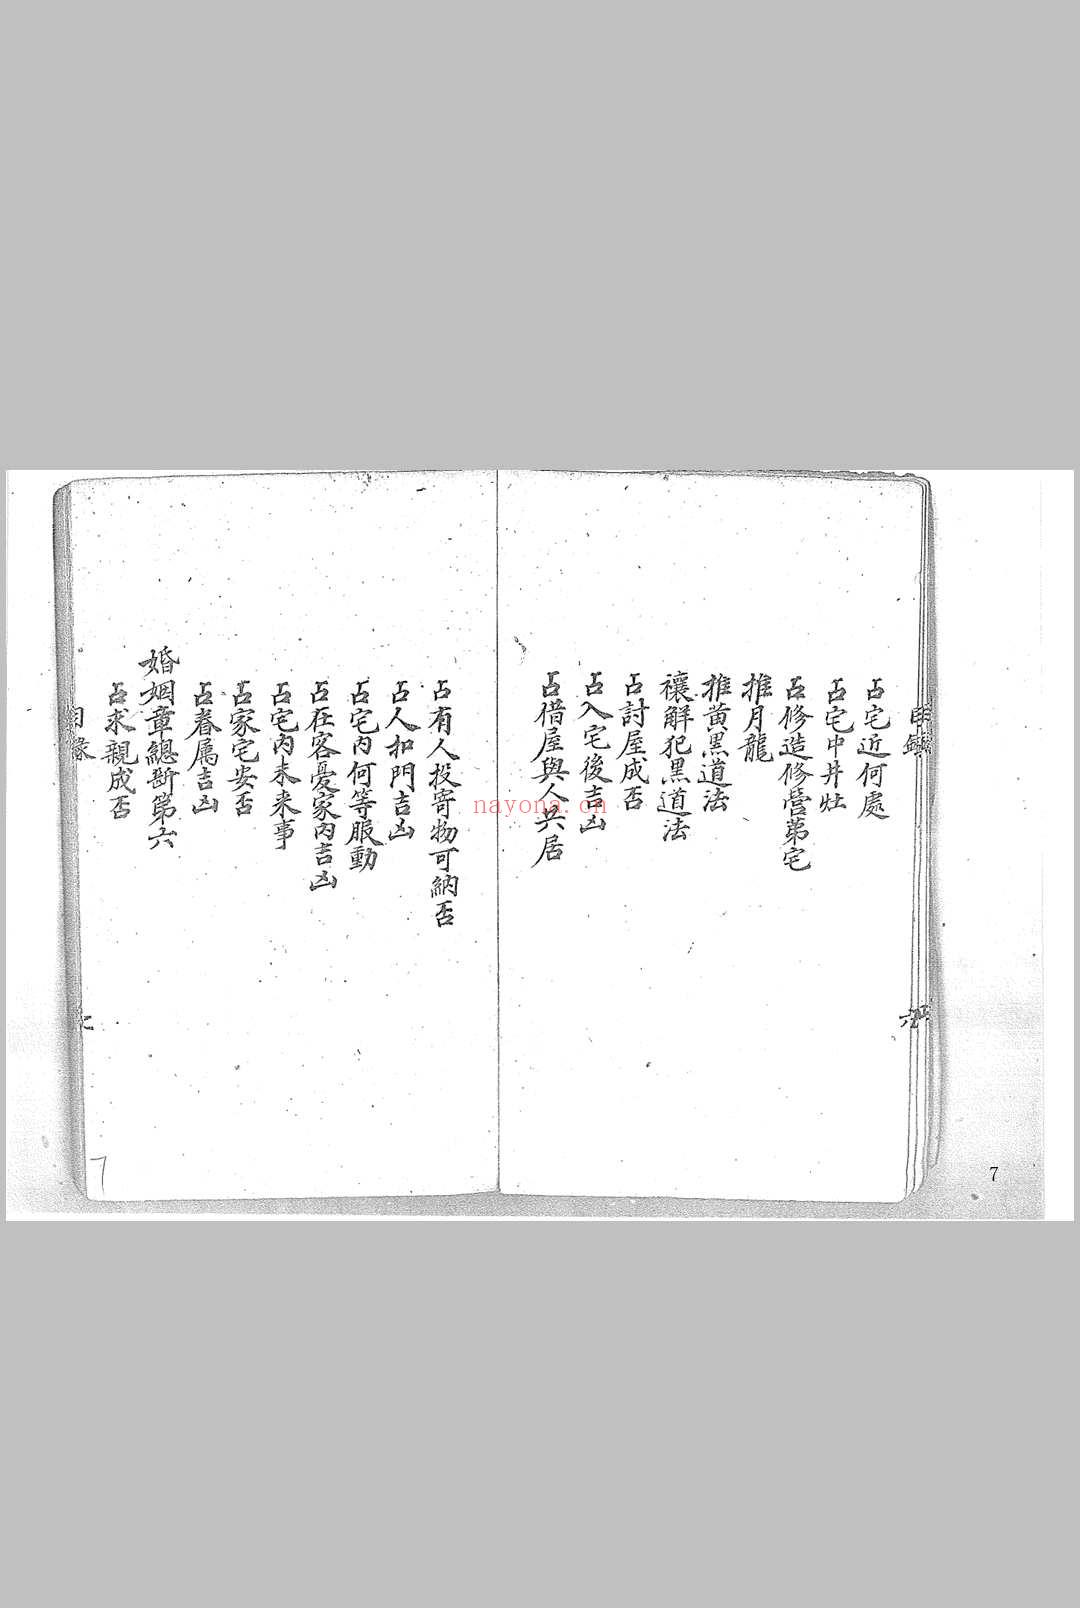 占宅近何處
占宅中井灶
占修造修營苐宅
推月龍
推黄黑道法
禳解犯黑道法
占討屋成否
占入宅後吉凶
占借屋與人共居
占有人投寄物可納否
占人扣門吉凶
占宅内何等服動
占在客憂家内吉凶
占宅内未来事
占家宅安否
占眷属吉凶
婚姻章總斷第六
占求親成否
目錄
六
7
nayona.cn